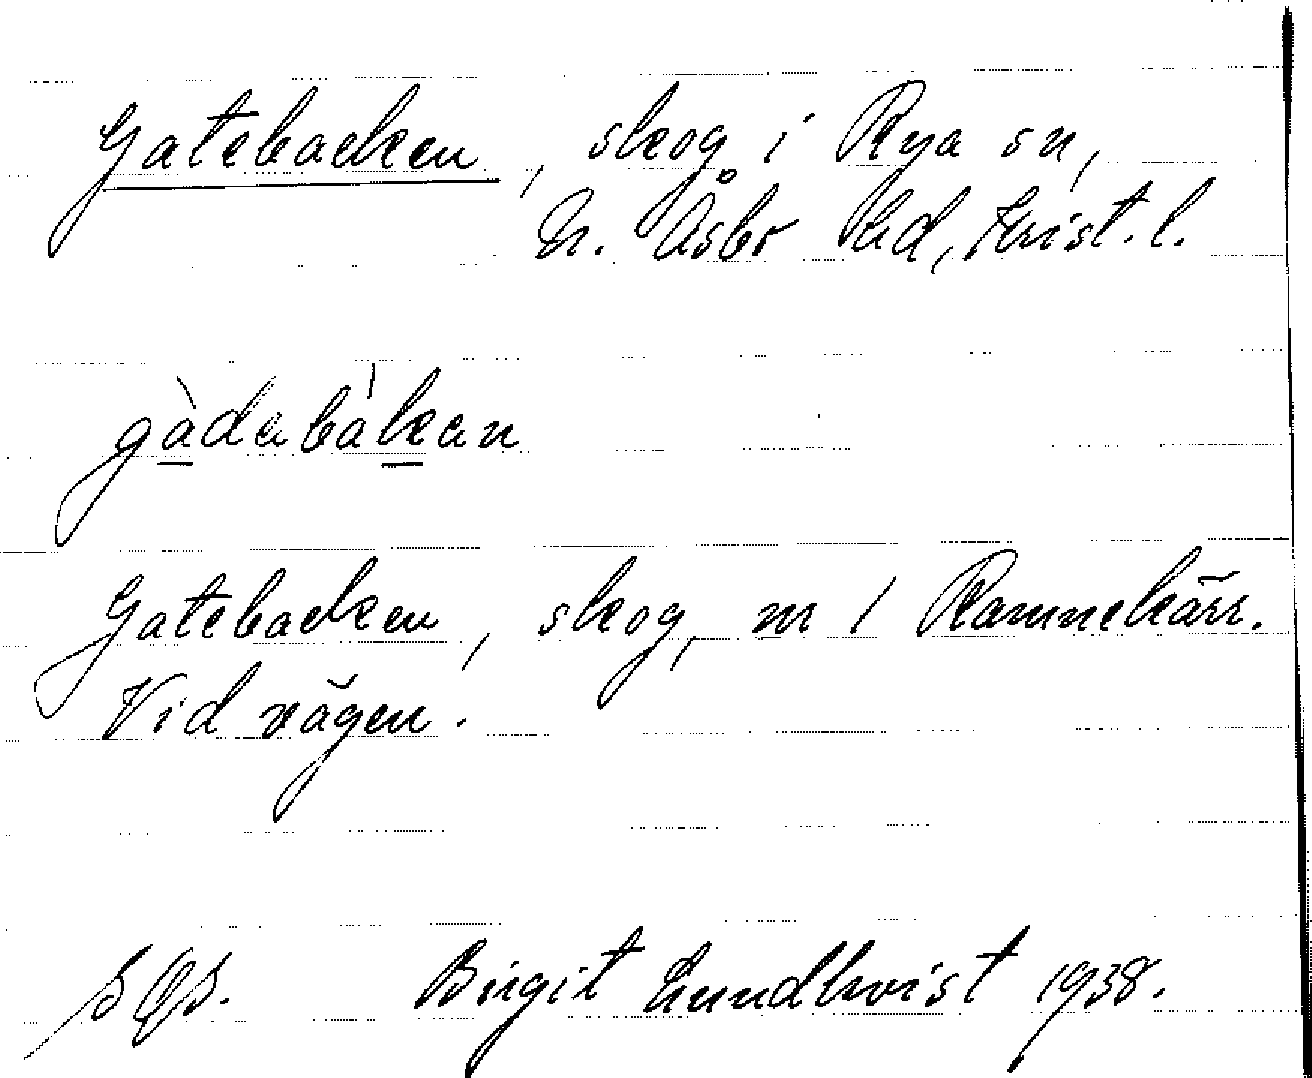 Gatebacken, skog i Rya sn,
N. Åsbo hd, Krist. l.
gàdabàkan
Gatebacken, skog, m 1 Ramnekärr.
Vid vägen.
Birgit Lundkvist 1938.